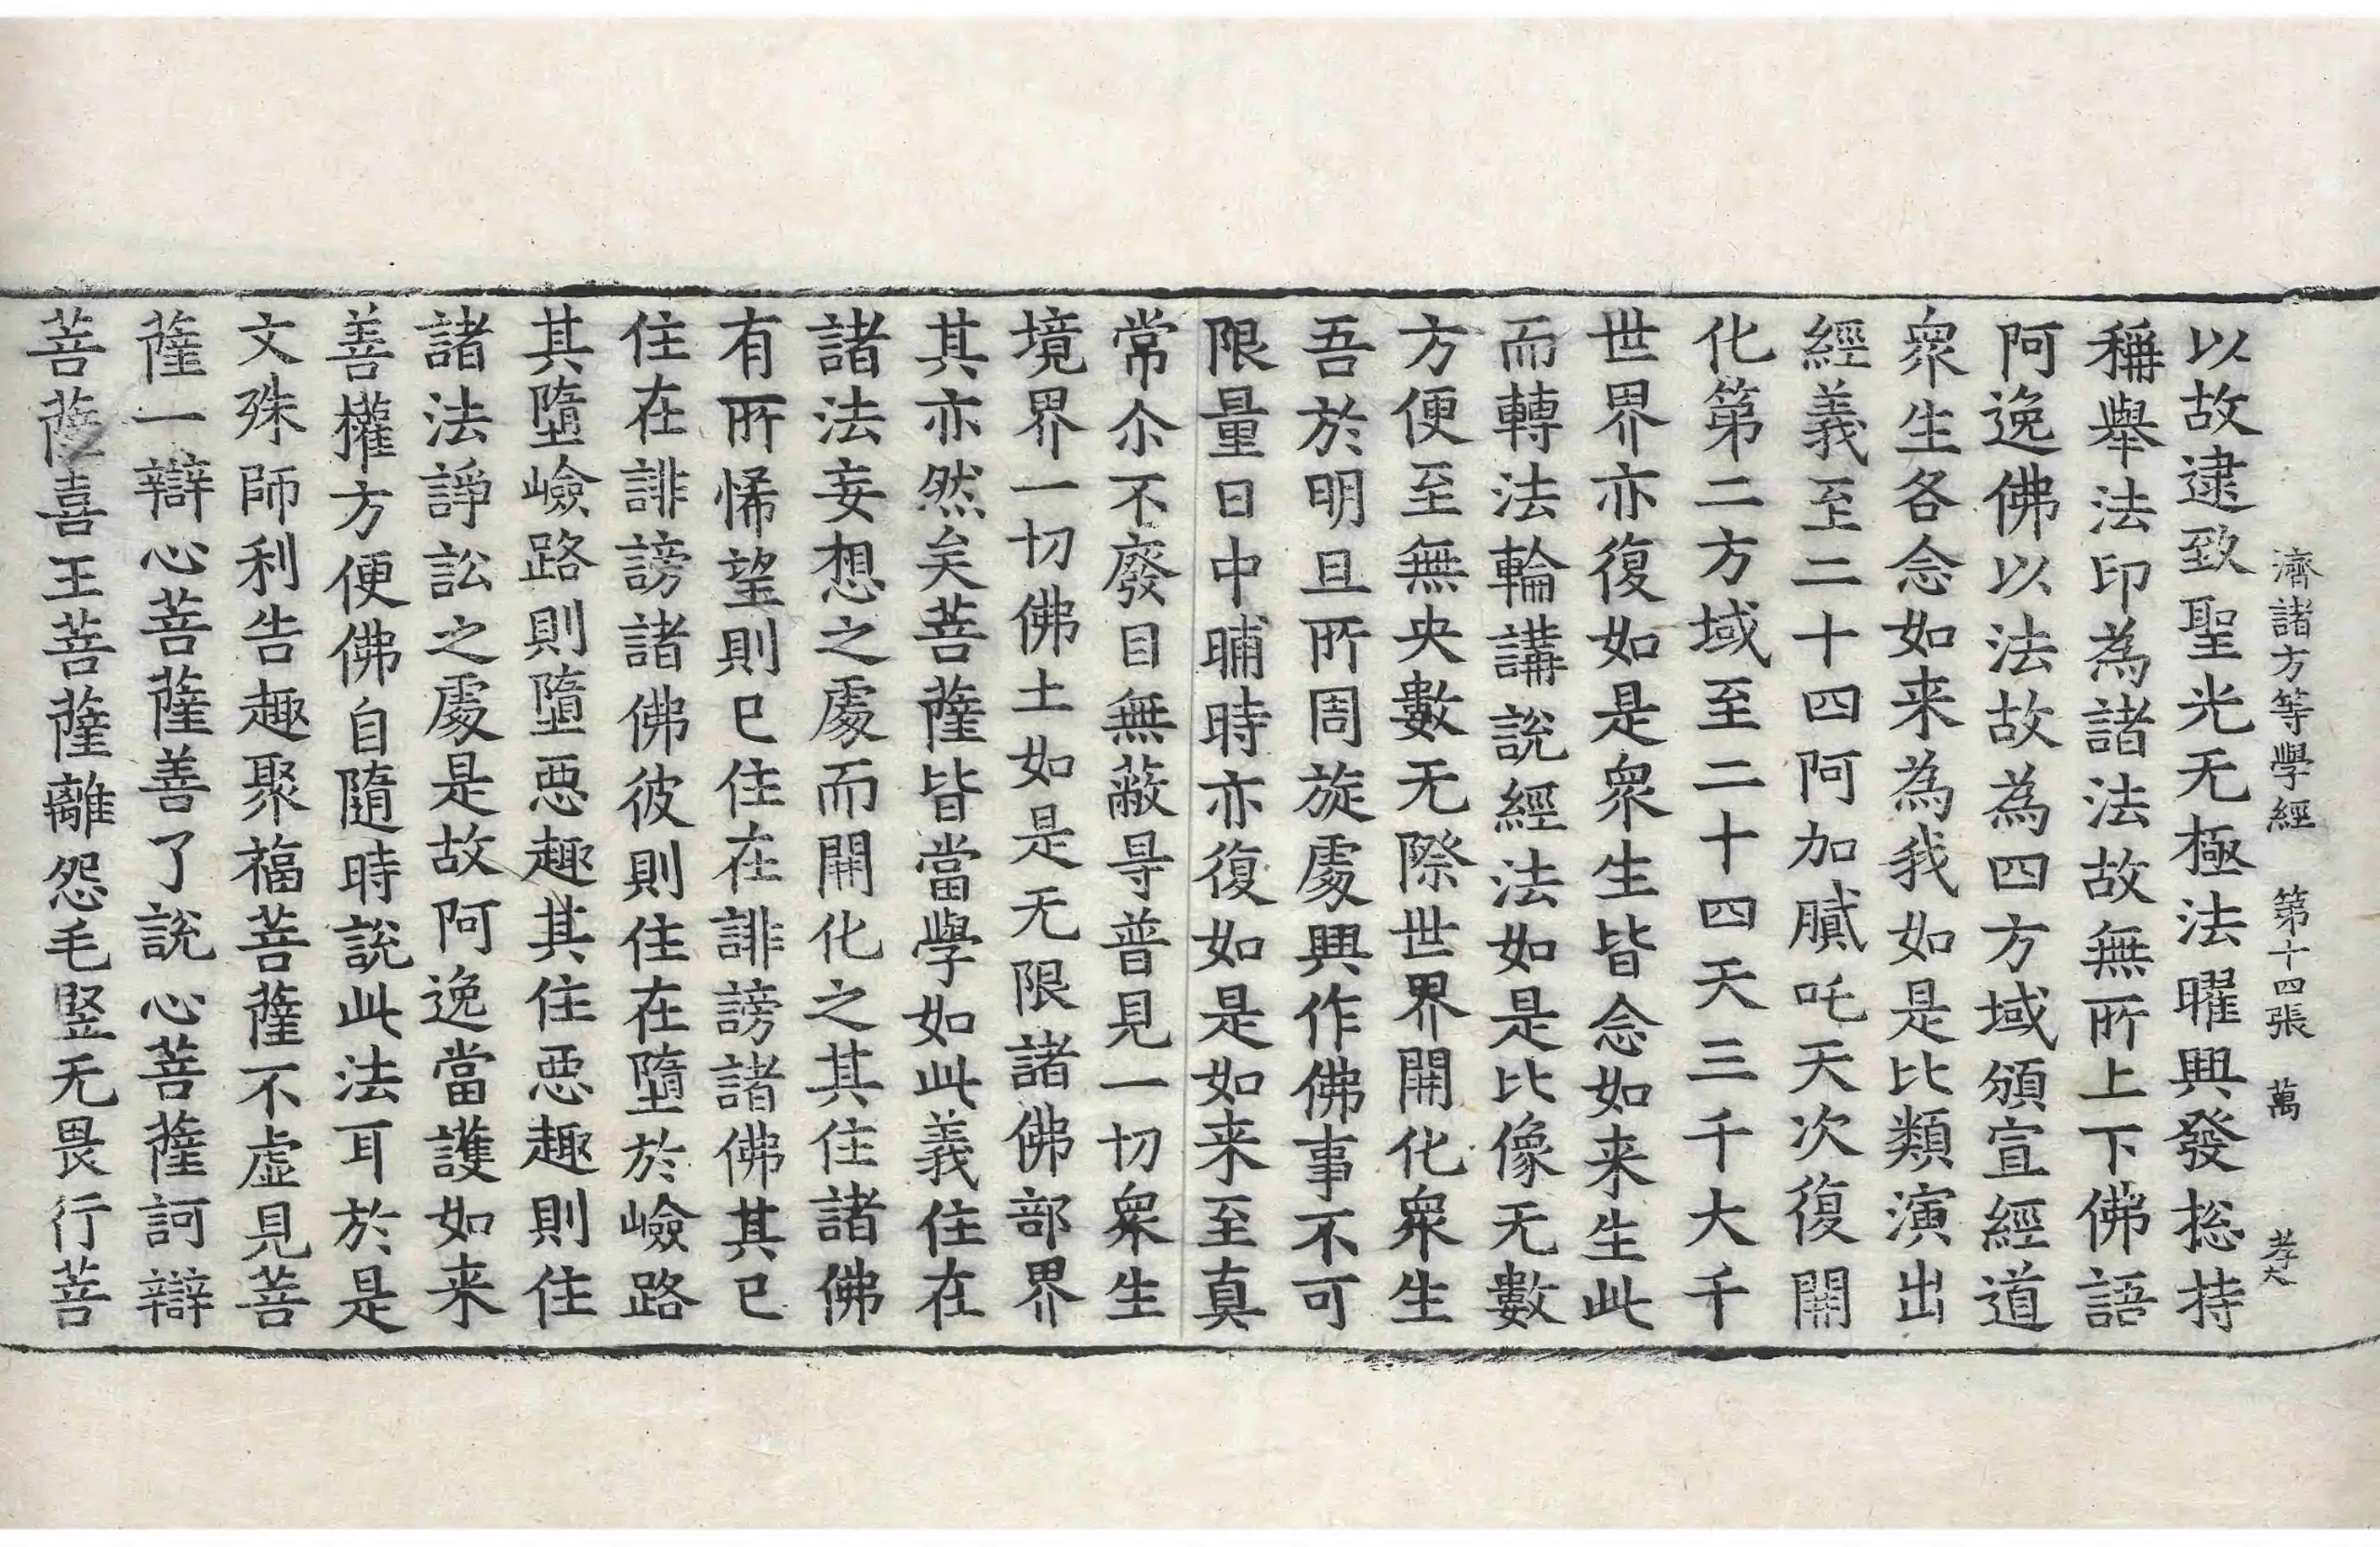 濟諸方等學經　第十四張　萬　孝大
以故逮致聖光无極法曜興發捴持
稱舉法印為諸法故無所上下佛語
阿逸佛以法故為四方域頒宣經道
衆生各念如来為我如是比類演出
經義至二十四阿加膩吒天次復開
化第二方域至二十四天三千大千
世界亦復如是衆生皆念如来生此
而轉法輪講說經法如是比像无數
方便至無央數无際世界開化衆生
吾於明旦所周旋處興作佛事不可
限量日中晡時亦復如是如来至真
常尒不廢目無蔽㝵普見一切衆生
境界一切佛土如是无限諸佛部界
其亦然矣菩薩皆當學如此義住在
諸法妄想之處而開化之其住諸佛
有所悕望則已住在誹謗諸佛其已
住在誹謗諸佛彼則住在墮於嶮路
其墮嶮路則墮惡趣其住惡趣則住
諸法諍訟之處是故阿逸當護如来
善權方便佛自隨時說此法耳於是
文殊師利告趣聚福菩薩不虛見菩
薩一辯心菩薩善了說心菩薩訶辯
菩薩喜王菩薩離怨毛竪无畏行菩